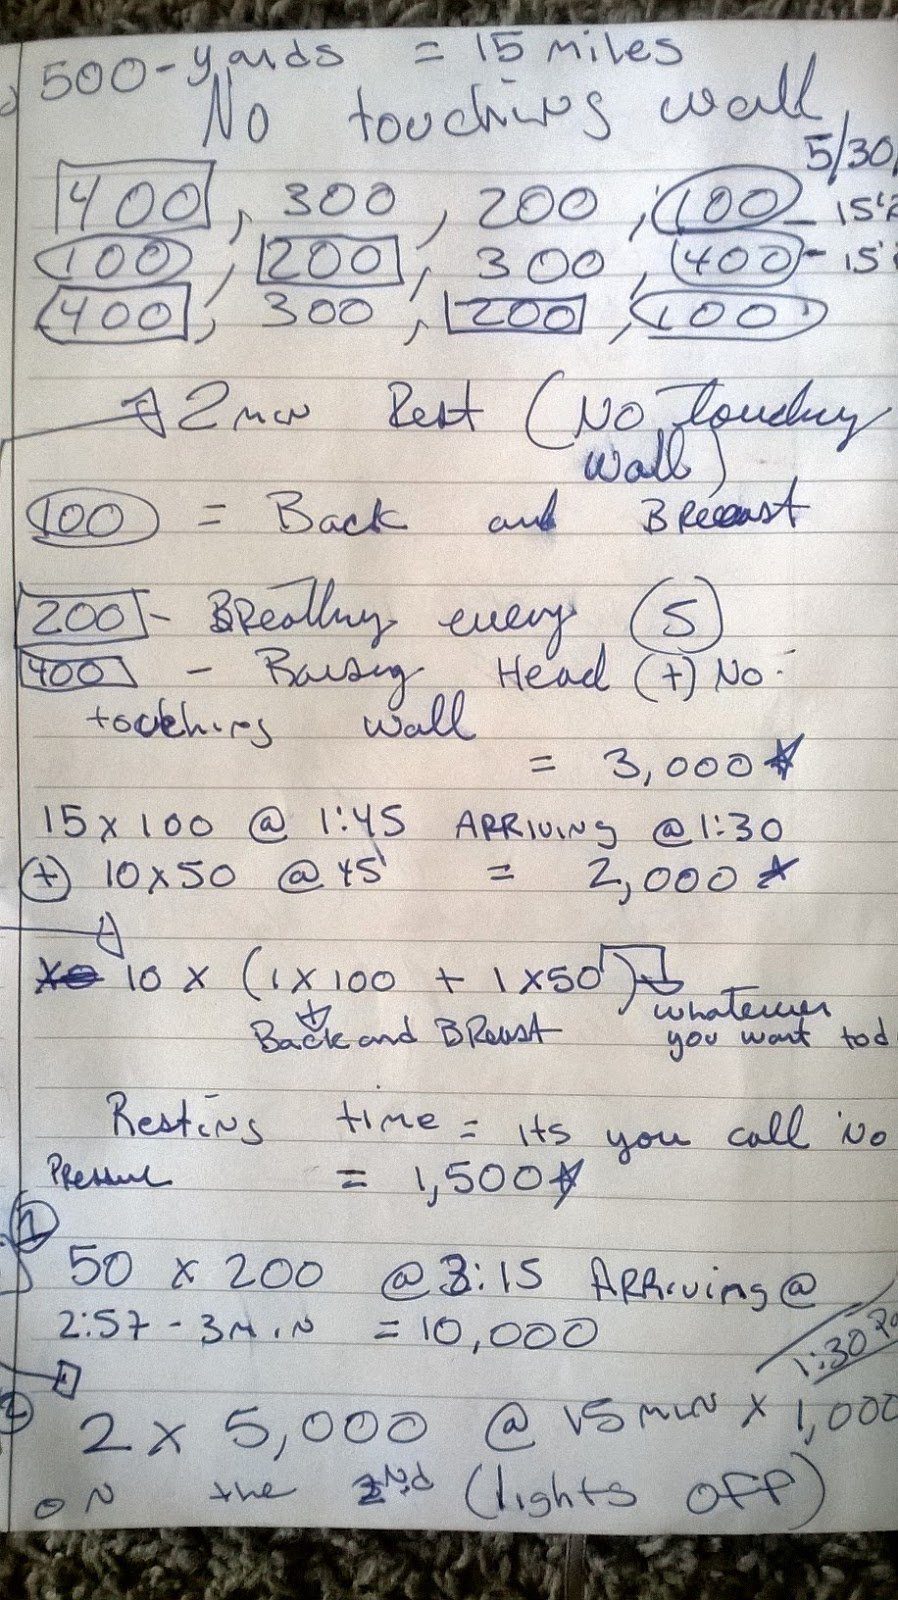 500-yards = 15 miles
No touching wall
5/30/
400, 300, 200, 100 - 15'
100, 200, 300, 400 - 15'
400, 300, 200, 100
2 min Rest (No Touching
wall)
100 = Back and Breast
200 - Breathing every 5
400 - Raising Head (+) No
touching wall
= 3,000 ☆
15 x 100 @ 1:45 ARRIVING @ 1:30
(+) 10 x 50 @ 45' = 2,000 ☆
10 x (1 x 100 + 1 x 50)
Back and BReast
whatever
you want to d
Resting time = its you call No
Pressure = 1,500 ☆
1
50 x 200 @ 3:15 ARRiving @
2:57 - 3 MiN = 10,000
1:30
2
2 x 5,000 @ 15 min x 1,000
ON the 2Nd (lights OFF)